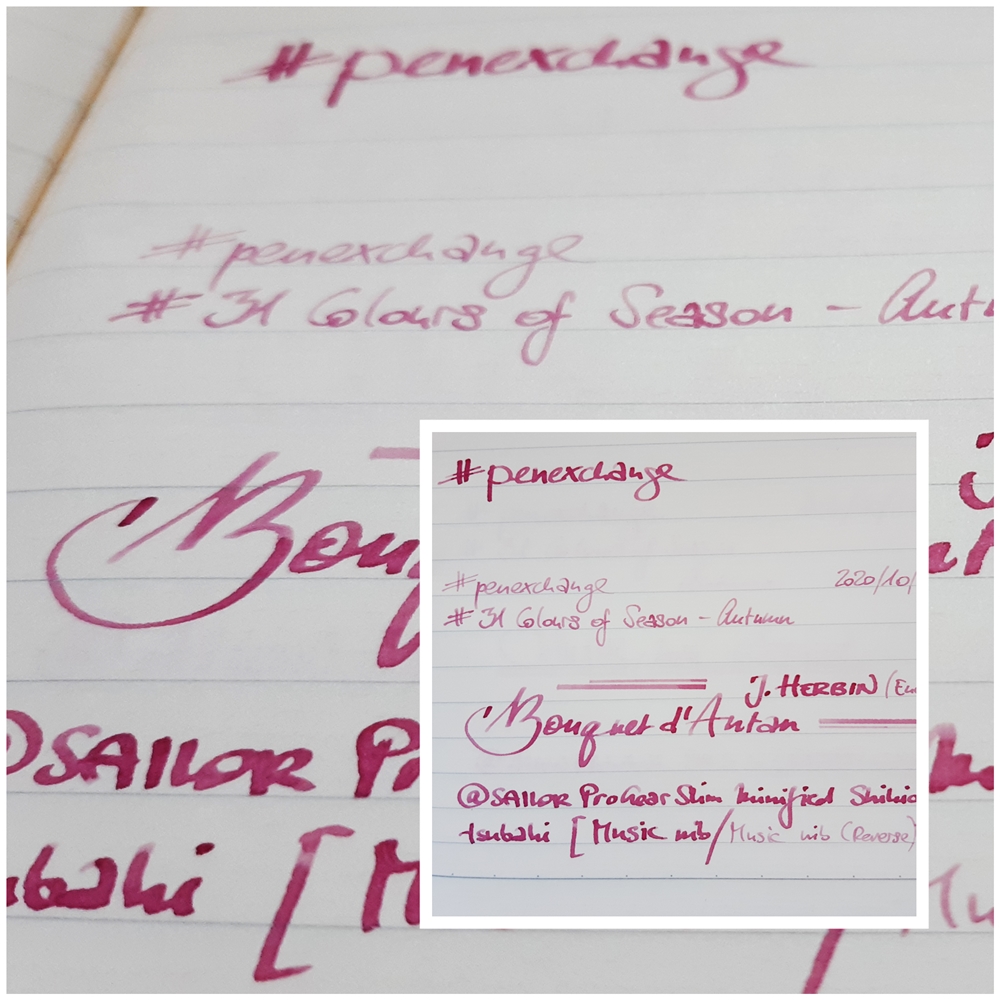 #penexchange
#penexchange
# 31 Colours of Season - Autu
Bouq
@SAILOR Pr
ubaki [M
#penexchange
#penexchange 2020/10/
# 31 Colours of Season - Autumn
J. HERBIN (
Bouquet d'Antan
@SAILOR ProGear Slim minified Shikio
tsubaki [Music nib/Music nib (Reverse)